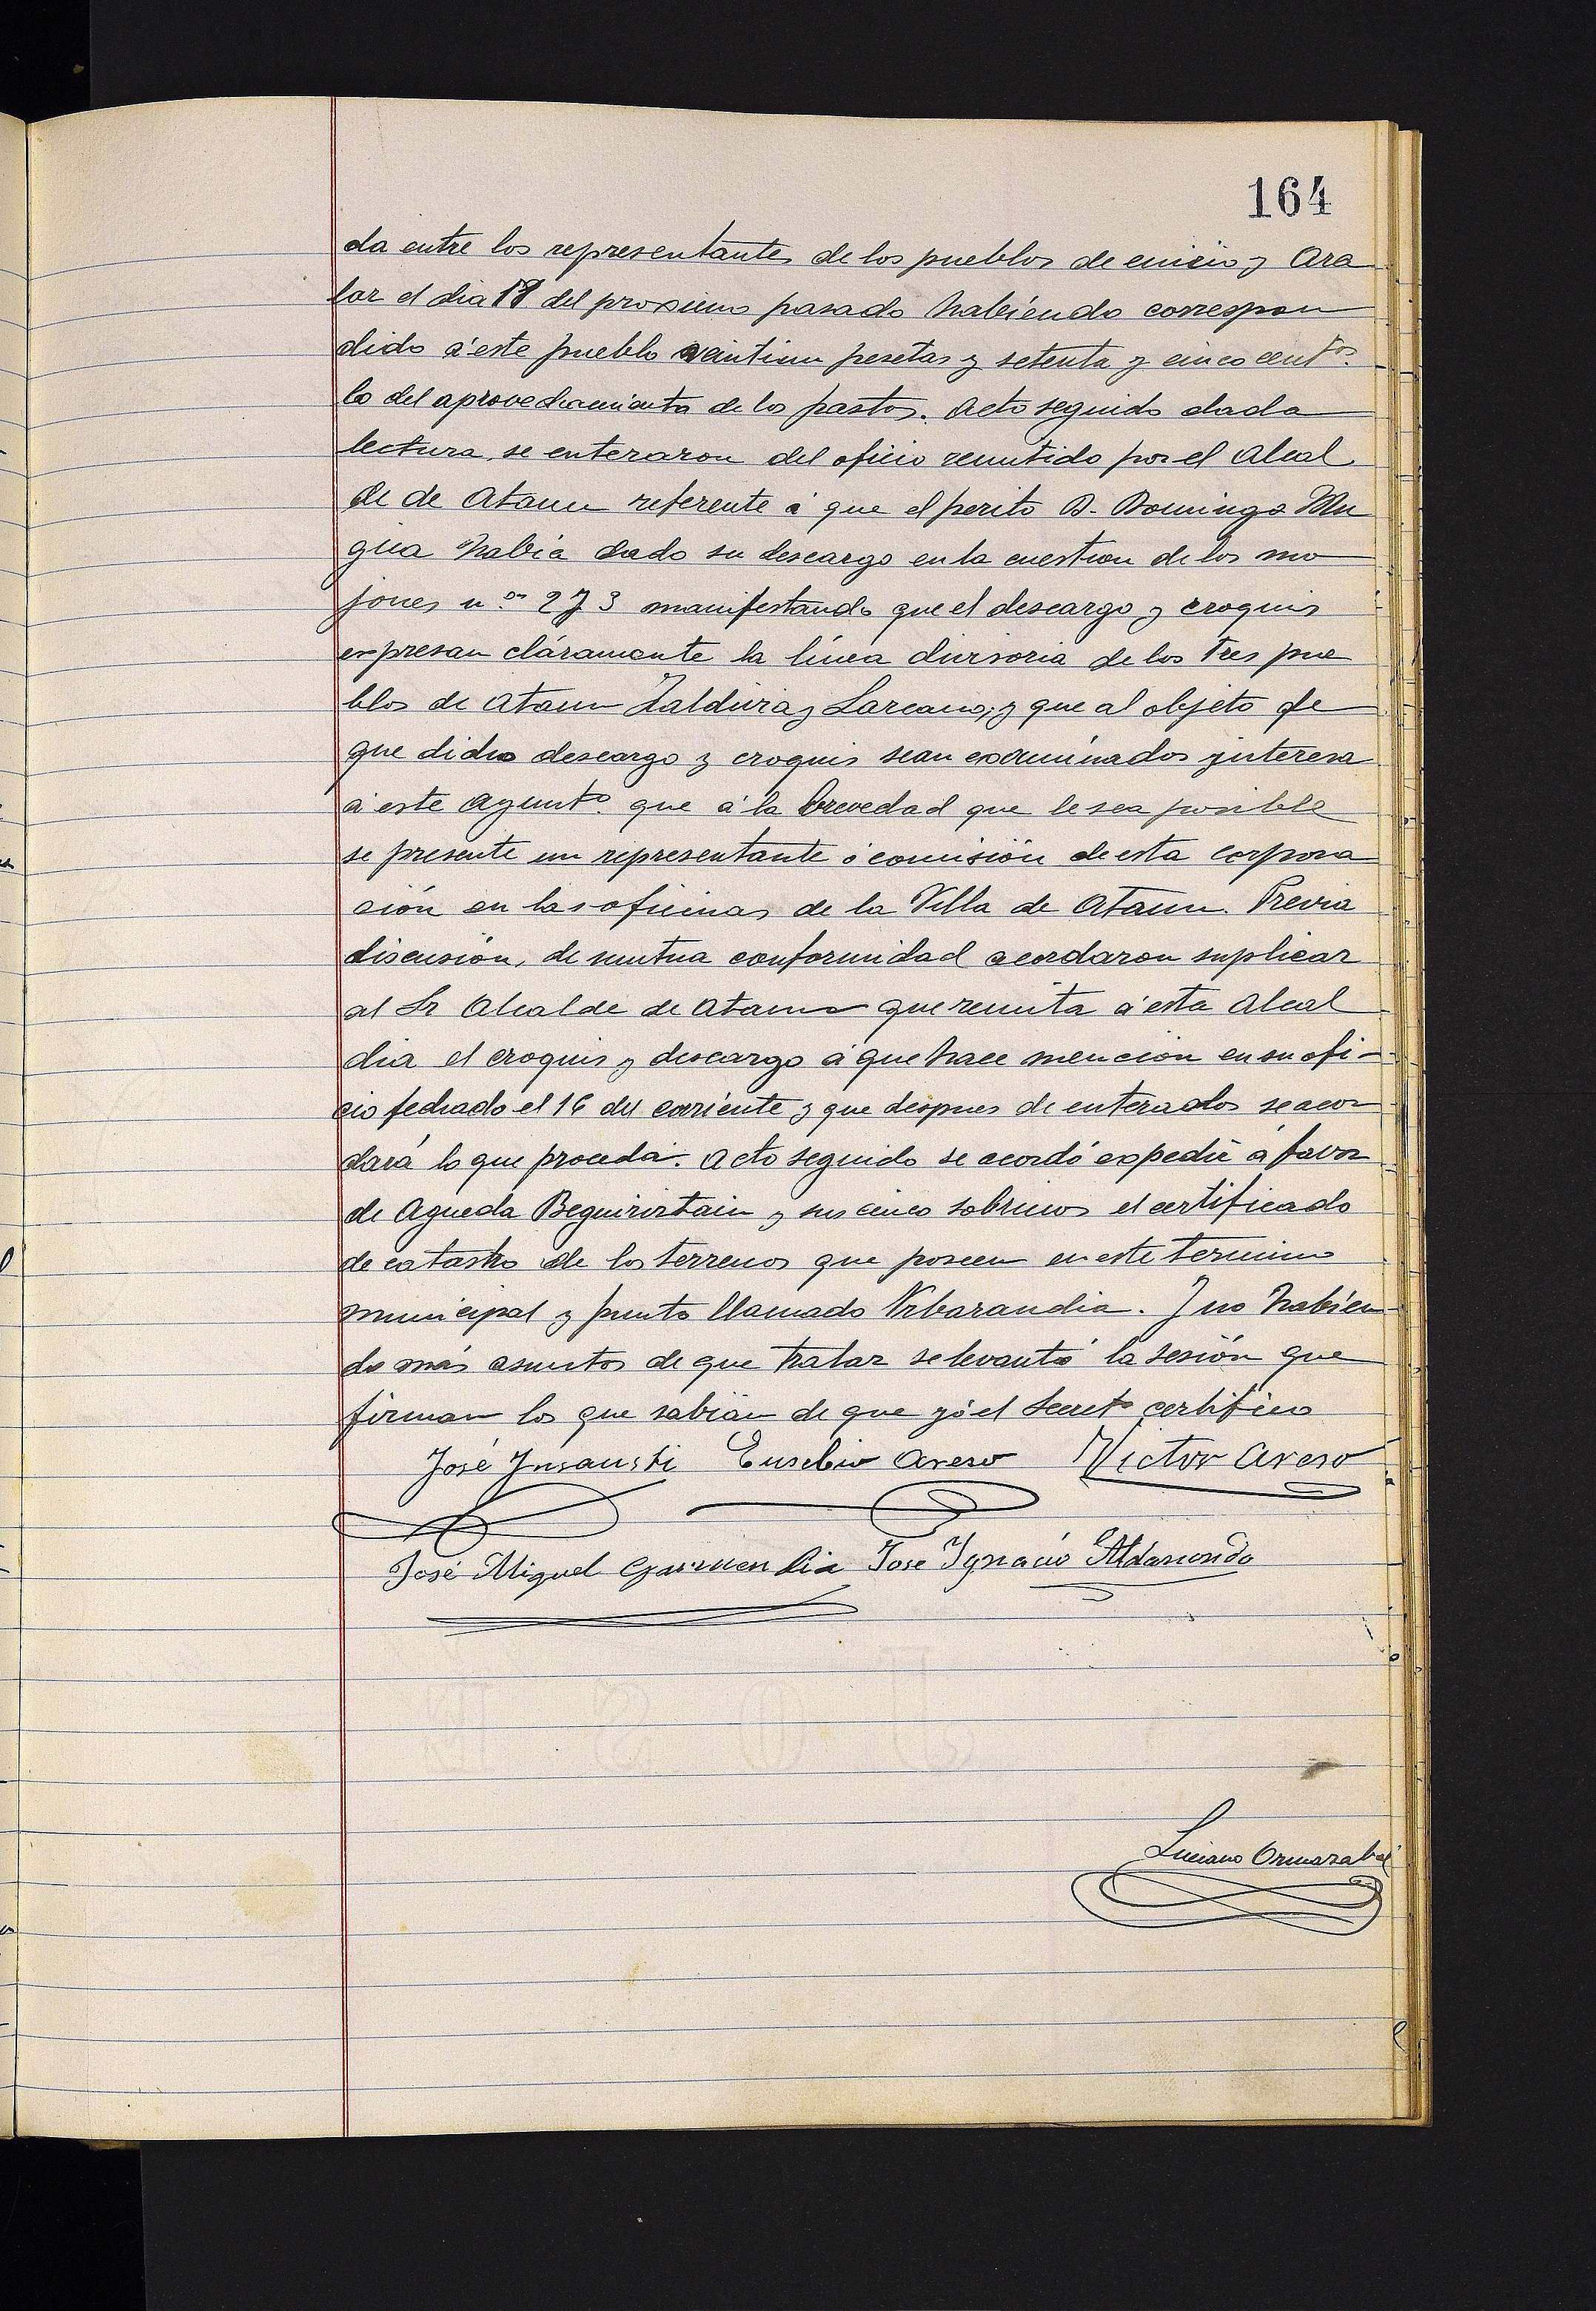 164
da entre los representantes de los pueblos de enirio y Ara
lar el dia 18 del proximo pasado habiendo correspon
dido á este pueblo veintiun pesetas y setenta y cinco centos.
lo del aprovechamiento de los pastos. Acto seguido dada
lectura, se enteraron del oficio remitido por el Alcal
de de Ataun referente á que el perito D. Domingo Mu
gica habia dado su descargo en la cuestion de los mo
jones n.os 2 y 3 manifestando que el descargo y croquis
expresan cláramente la línea divisoria de los tres pue
blos de Ataun Zaldivia y Lazcano; y que al objeto de
que dicho descargo y croquis sean examinados interesa
á este Ayunto. que á la brevedad que le sea posible
se presente un representante ó comisión de esta corpora
ción en las oficinas de la Villa de Ataun. Previa
discusión, de mutua conformidad acordaron suplicar
al Sr Alcalde de Ataun que remita á esta Alcal
dia el croquis y descargo á que hace mención en su ofi-
cio fechado el 16 del corriente y que despues de enterados se acor
dará lo que proceda. Acto seguido se acordó expedir á favor
de Agueda Beguiristain y sus cinco sobrinos el certificado
de catastro de los terrenos que poseen en este termino
municipal y punto llamado Urbarandia. Y no habien
do más asuntos de que tratar se levantó la sesión que
firman los que sabian de que yó el Secreto certifico
José Ynsausti Eusebio Areso Victor Areso
José Miguel Garmendia José Ygnacio Aldasoro
Luciano Ormazabal